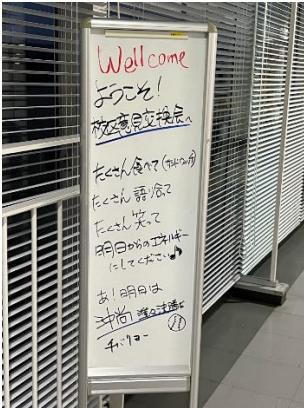 Wellcome
ようこそ!
校区意見交換会へ
たくさん食べて
たくさん語り合って
たくさん笑って
明日からのエネルギー
にしてください♪
あ!明日は
沖尚
チバリヨー